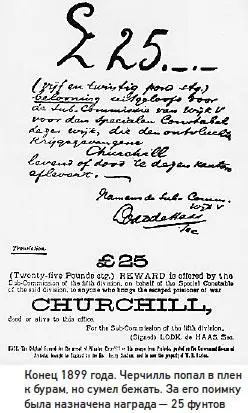 £ 25.–.–
(vijf en twintig pond stg.)
belooning uitgeloofd door
de Sub-Commissie van Wijk V
voor den Specialen Constabel
dezer wijk, die den ontvluchte
Krijgsgevangene
Churchill
levend of dood te dezen kantore
aflevert.
Namens de Sub-Comm.
Wijk V
Lodk de Haas
Sec
Translation.
£25
(Twenty-five Pounds stg.) REWARD is offered by the
Sub-Commission of the fifth division, on behalf of the Special Constable
of the said division, to anyone who brings the escaped prisoner of war
CHURCHILL,
dead or alive to this office.
For the Sub-Commission of the fifth division,
(Signed) LODK. de HAAS, Sec.
Конец 1899 года. Черчилль попал в плен
к бурам, но сумел бежать. За его поимку
была назначена награда — 25 фунтов